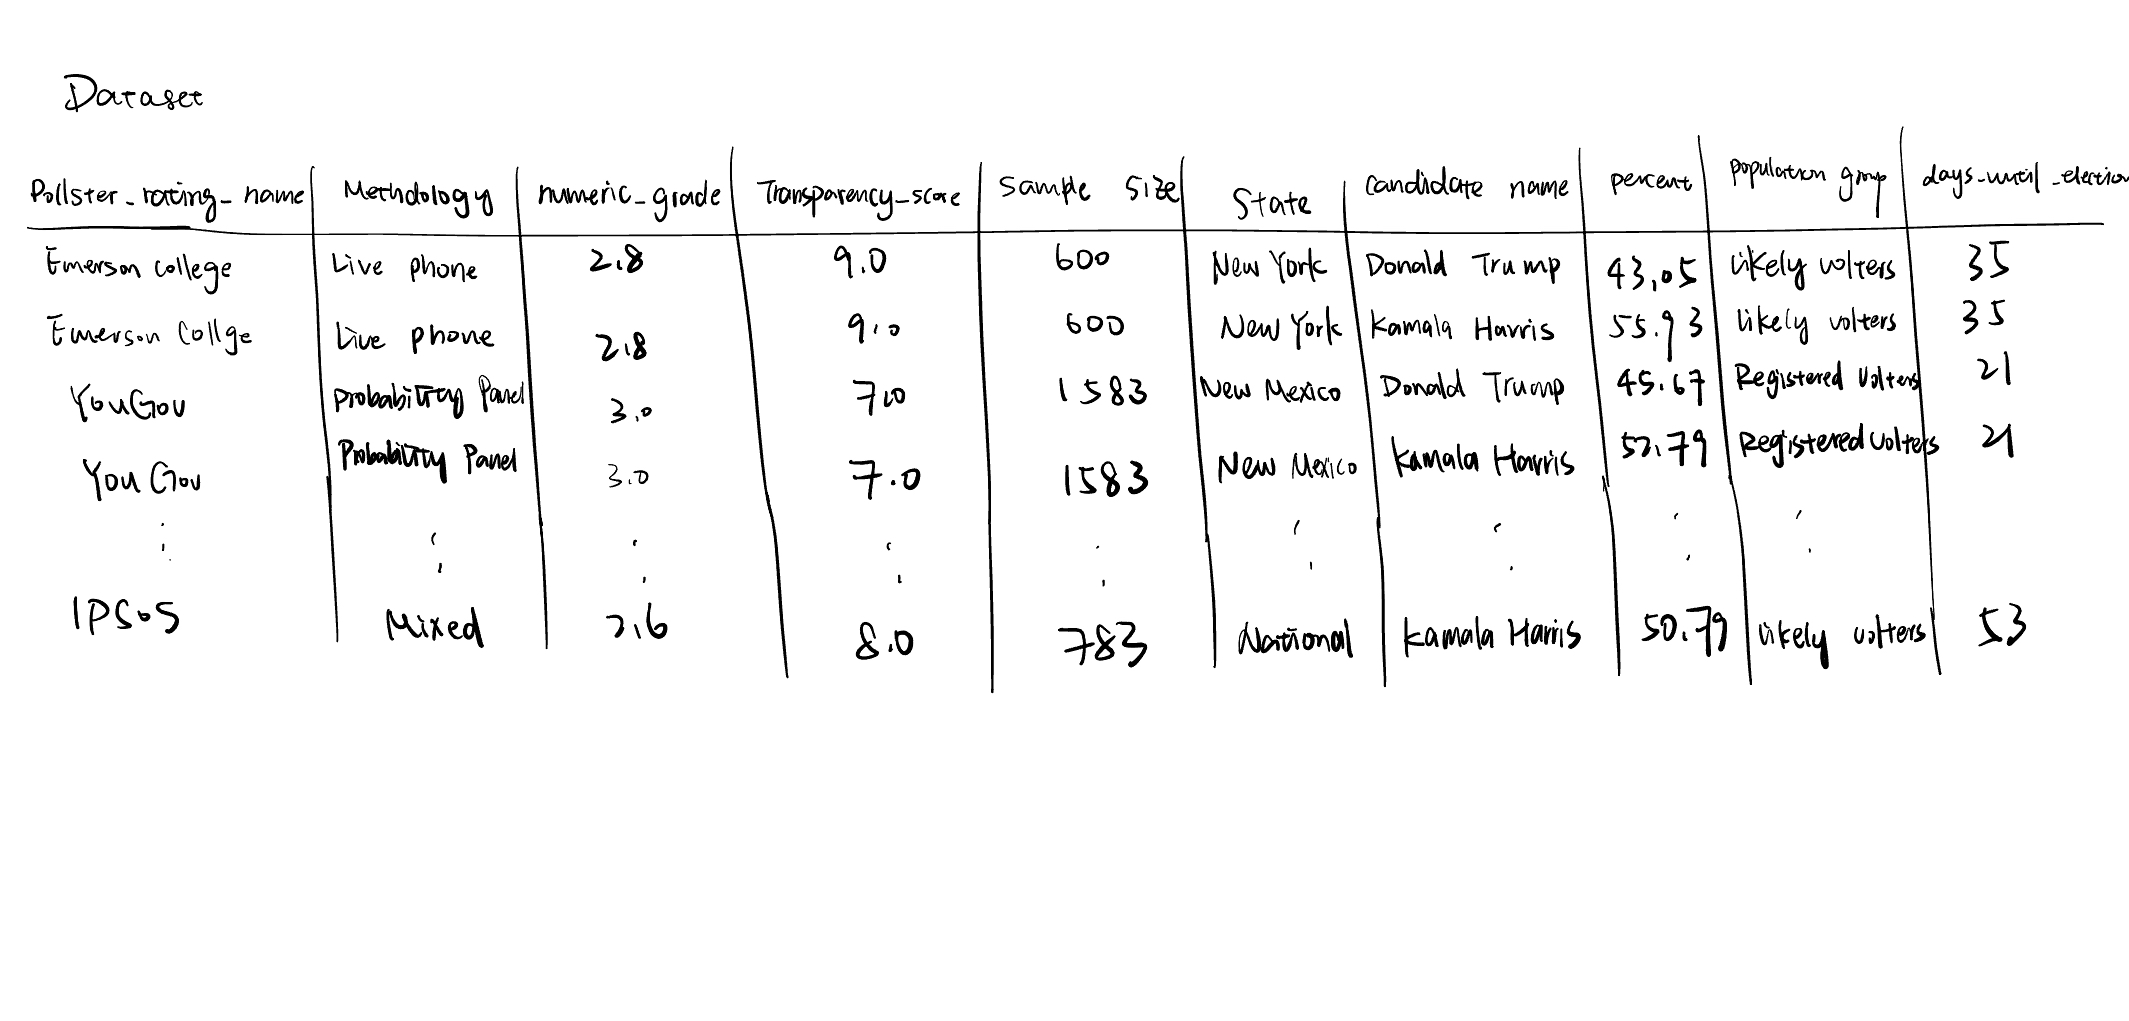 Dataset
Pollster_rating_name Methdology numeric_grade Transparency_score sample size State candidate name percent population group days_until_election
Emerson college Live phone 2.8 9.0 600 New York Donald Trump 43.05 likely volters 35
Emerson Collge Live phone 2.8 9.0 600 New York Kamala Harris 55.93 likely volters 35
YouGov probability Panel 3.0 7.0 1583 New Mexico Donald Trump 45.67 Registered Volters 21
YouGov Probability Panel 3.0 7.0 1583 New Mexico Kamala Harris 52.79 Registered Volters 21
IPSOS Mixed 2.6 8.0 783 National Kamala Harris 50.79 likely volters 53